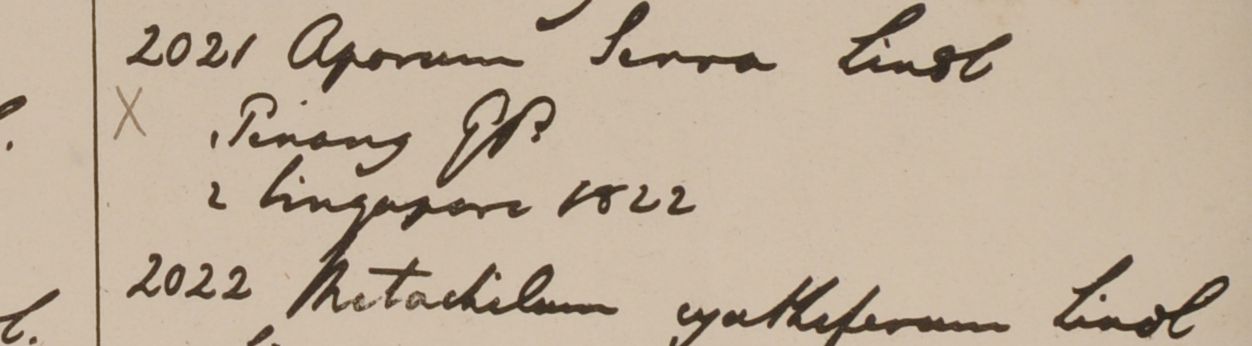 2021 Aporum Serra Lindl
X
Pinang GP.
2 Singapore 1822
2022 Metachilum cyatheferum Lindl